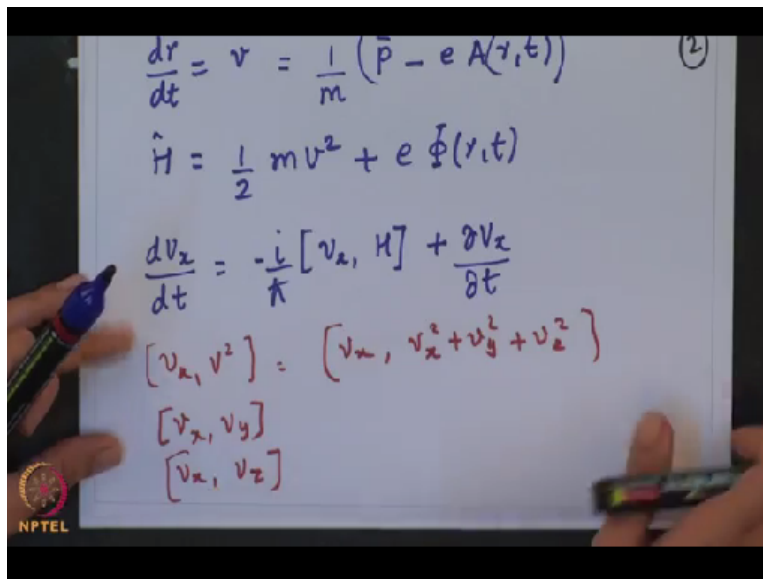 dr/dt = v = 1/m (p̄ - e A(r,t))
②
Ĥ = 1/2 m v² + e Φ(r,t)
dvₓ/dt = -i/ħ [vₓ, H] + ∂vₓ/∂t
[vₓ, v²] = [vₓ, vₓ² + v_y² + v_z²]
[vₓ, v_y]
[vₓ, v_z]
NPTEL